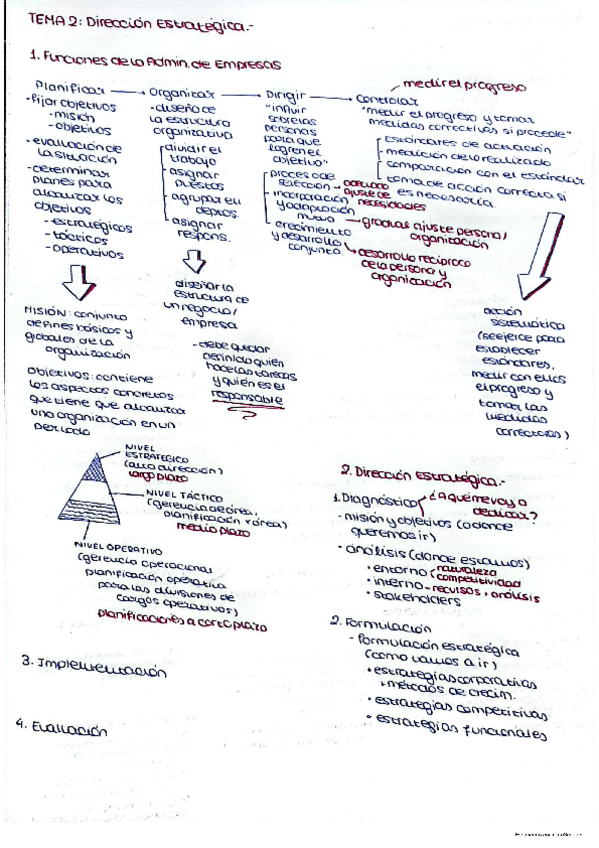 TEMA 2: Dirección Estratégica.-
1. Funciones de la Admin. de Empresas
Planificar → Organizar → Dirigir → Controlar
medir el progreso
•fijar objetivos
-misión
-objetivos
-evaluación de
la situación
-determinar
planes para
alcanzar los
objetivos
-estratégicos
-tácticos
-operativos
MISIÓN: conjunto
de fines básicos y
globales de la
organización
Objetivos: contiene
los aspectos concretos
que tiene que alcanzar
una organización en un
periodo
-diseño de
la estructura
organizativa
dividir el
trabajo
-asignar
puestos
-agrupar en
deptos.
-asignar
respons.
diseñar la
estructura de
un negocio/
empresa
-debe quedar
definido quién
hace las tareas
y quién es el
responsable
"influir
sobre las
personas
para que
logren el
objetivo"
proceso de
selección - 
ajuste de
necesidades
-incorporación
y adaptación
mutua → gradual ajuste persona/
organización
-crecimiento
y desarrollo
conjunto.
desarrollo recíproco
de la persona y
organización
"medir el progreso y tomar
medidas correctivas si procede"
-estándares de actuación
-medición de lo realizado
-comparación con el estándar
-toma de acción correcta si
es necesaria.
acción
sistemática
(se ejerce para
establecer
estándares,
medir con ellos
el progreso y
tomar las
medidas
correctoras)
NIVEL
ESTRATÉGICO
(alta dirección)
largo plazo
NIVEL TÁCTICO
(gerencia de área,
planificación x área)
medio plazo
NIVEL OPERATIVO
(gerencia operacional
planificación operativa
para las divisiones de
cargos operativos)
planificaciones a corto plazo
2. Dirección Estratégica.-
1. Diagnóstico
¿A qué me voy a
dedicar?
-misión y objetivos (a donde
queremos ir)
-análisis (donde estamos)
•entorno
naturaleza
competitividad
•interno - recursos + análisis
•stakeholders
2. Formulación
- Formulación estratégica
(como vamos a ir)
•estrategias corporativas
+ métodos de crecim.
•estrategias competitivas
•estrategias funcionales
3. Implementación
4. Evaluación